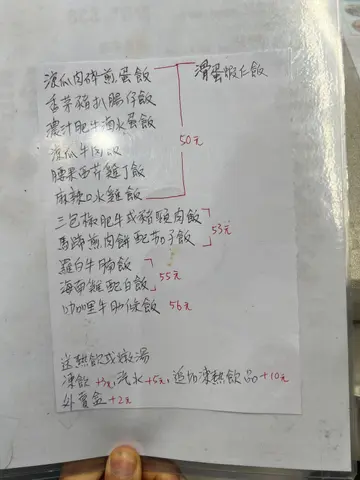 涼瓜肉碎煎蛋飯
滑蛋蝦仁飯
香茅豬扒腸仔飯
濃汁肥牛滷水蛋飯
50元
涼瓜牛肉飯
腰果西芹雞丁飯
麻辣口水雞飯
三色椒肥牛或豬頸肉飯
馬蹄煎肉餅配茄子飯
53元
蘿白牛腩飯
55元
海南雞配白飯
咖喱牛肋條飯 56元
送熱飲或燉湯
凍飲 汽水+5元, 凍熱飲品+10元
外賣盒+2元